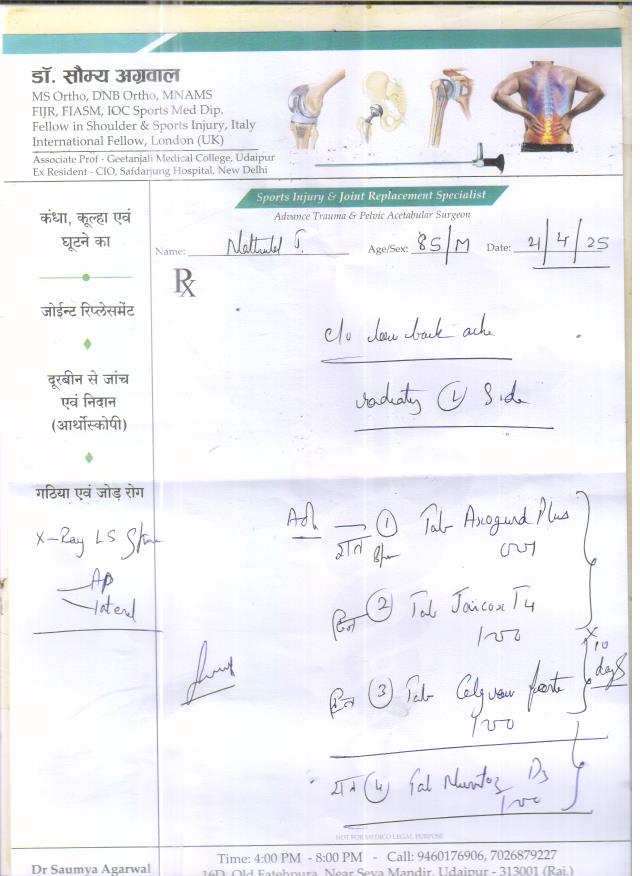 डॉ. सौम्य अग्रवाल
MS Ortho, DNB Ortho, MNAMS
FIJR, FIASM, IOC Sports Med Dip.
Fellow in Shoulder & Sports Injury, Italy
International Fellow, London (UK)
Associate Prof - Geetanjali Medical College, Udaipur
Ex Resident - CIO, Safdarjung Hospital, New Delhi
Sports Injury & Joint Replacement Specialist
Advance Trauma & Pelvic Acetabular Surgeon
Name: Age/Sex: 85/M Date: 21/4/25
Rx
कंधा, कूल्हा एवं
घूटने का
जोईन्ट रिप्लेसमेंट
दूरबीन से जांच
एवं निदान
(आर्थोस्कोपी)
गठिया एवं जोड़ रोग
X-Ray LS Spine
AP
lateral
c/o low back ache
radiating L Side
Adv
रात 8pm 1 Tab Plus
001
दिन 2 Tab T4
100
दिन 3 Tab forte
100
x 10 days
रात 4 Tab D3
100
NOT FOR MEDICO LEGAL PURPOSE
Dr Saumya Agarwal
Time: 4:00 PM - 8:00 PM - Call: 9460176906, 7026879227
16D, Old Fatehpura, Near Seva Mandir, Udaipur - 313001 (Raj.)